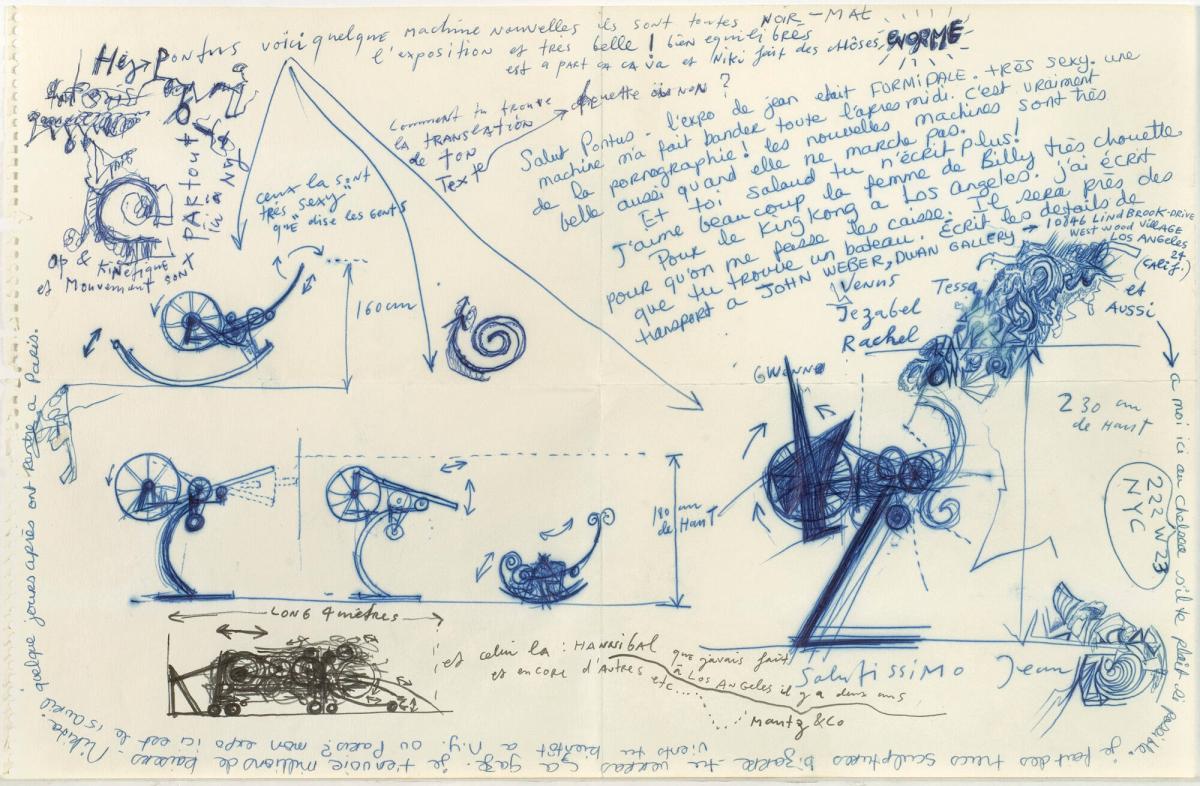 Hej Pontus voici quelque machine nouvelles ils sont toutes NOIR-MAT
l'exposition et très belle! bien equilibrés
est a part ca ca va et Niki fait des chôses ENORME
PARTOUT
ici à NY
op & Kinetique
et Mouvement sont
Comment tu trouve
la TRANSLATION
de TON
Texte
chouette ou NON?
ceux la sont
très sexy
que dise les Gents
160 cm
Salut Pontus. l'expo de jean etait FORMIDALE. très sexy. une
machine m'a fait bander toute l'apres midi. c'est vraiment
de la pornographie! les nouvelles machines sont très
belle aussi quand elle ne marche pas.
Et toi salaud tu n'écrit plus!
J'aime beaucoup la femme de Billy très chouette
Pour le King Kong a Los Angeles. j'ai écrit
pour qu'on me fasse les caisse. Il sera près des
que tu trouve un bateau. Écrit les details de
transport a JOHN WEBER, DWAN GALLERY → 10846 LINDBROOK-DRIVE
WEST WOOD VILLAGE
LOS ANGELES 24
(Calif.)
et
AUSSI
a moi ici au chelsea s'il te plait si possible.
222 W 23
NYC
Venus
Tessa
Jezabel
Rachel
GWENN
230 cm
de Haut
180 cm
de Haut
LONG 4 mètres
et celui la: HANNIBAL
que j'avais fait
à Los Angeles il y a deux ans
et encore d'Autres
etc....
Mantz & Co
Salutissimo Jean
je fait des trucs sculptures bizarre tu verras
ça gaz. je t'envoie millions de baisers
viens tu bientôt a n.y. ou Paris? mon expo ici est le 15 avril
quelque jours après ont rentre a Paris.
Nikida.